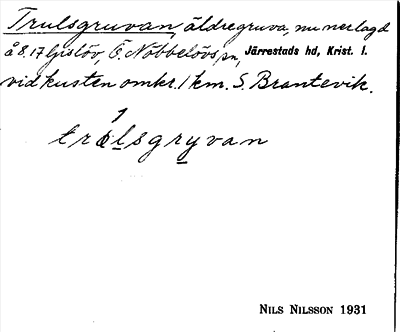 Trulsgruvan, äldre gruva, nu nerlagd
å 8.17 Gislöv, Ö. Nöbbelövs sn, Järrestads hd, Krist. l.
vid kusten omkr. 1 km. S. Brantevik.
NILS NILSSON 1931